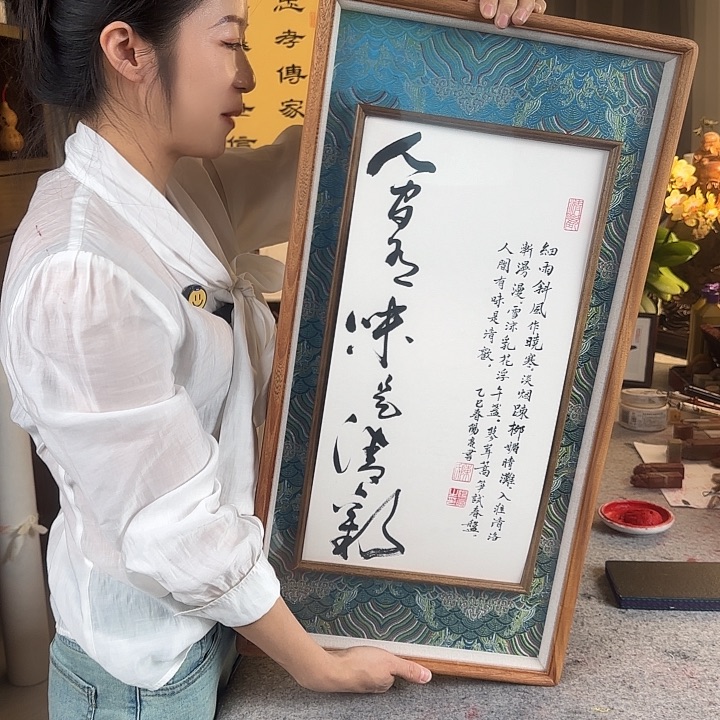 孝傳家
細雨斜風作曉寒。淡烟疎柳媚晴灘。入淮清洛
漸漫漫。雪沫乳花浮午盞。蓼茸蒿笋試春盤。
人間有味是清歡。
乙巳春 書
人間有味是清歡